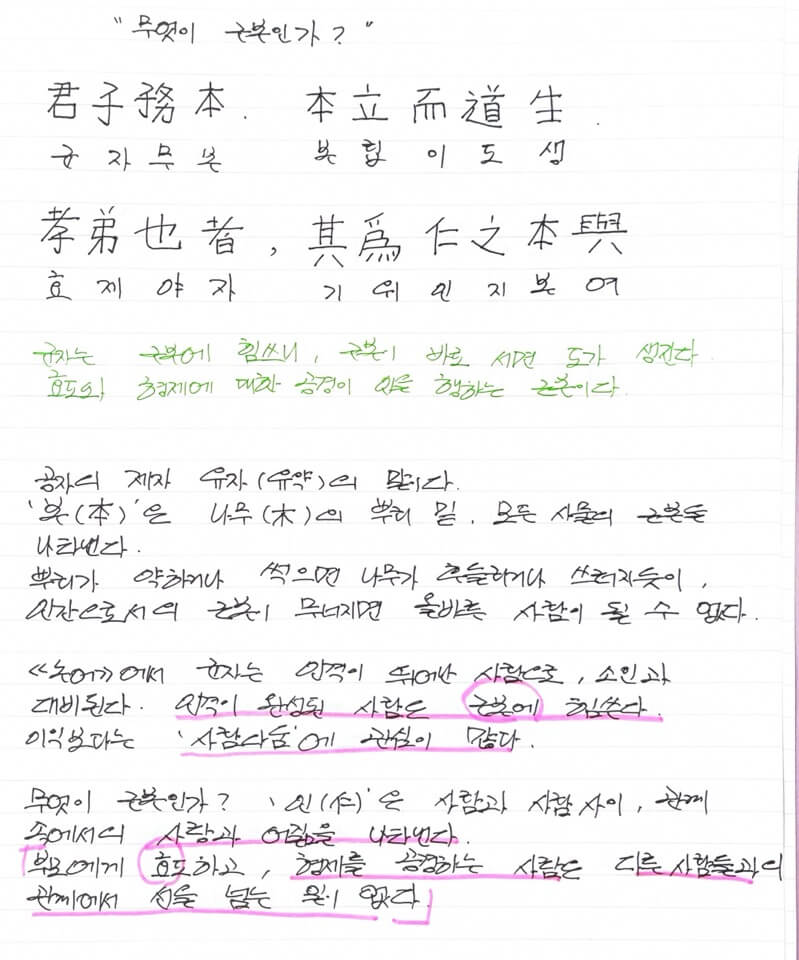 "무엇이 근본인가?"
君子務本. 本立而道生.
군자무본 본립이도생
孝弟也者, 其爲仁之本與
효제야자 기위인지본여
군자는 근본에 힘쓰니, 근본이 바로 서면 도가 생긴다.
효도와 형제에 대한 공경이 인을 행하는 근본이다.
공자의 제자 유자(유약)의 말이다.
'본(本)'은 나무(木)의 뿌리 밑, 모든 사물의 근본을
나타낸다.
뿌리가 약하거나 썩으면 나무가 흔들리거나 쓰러지듯이,
인간으로서의 근본이 무너지면 올바른 사람이 될 수 없다.
≪논어≫에서 군자는 인격이 뛰어난 사람으로, 소인과
대비된다. 인격이 완성된 사람은 근본에 힘쓴다.
이익보다는 '사람다움'에 관심이 많다.
무엇이 근본인가? '인(仁)'은 사람과 사람 사이, 관계
속에서의 사랑과 어짊을 나타낸다.
부모에게 효도하고, 형제를 공경하는 사람은 다른 사람들과의
관계에서 선을 넘는 일이 없다.